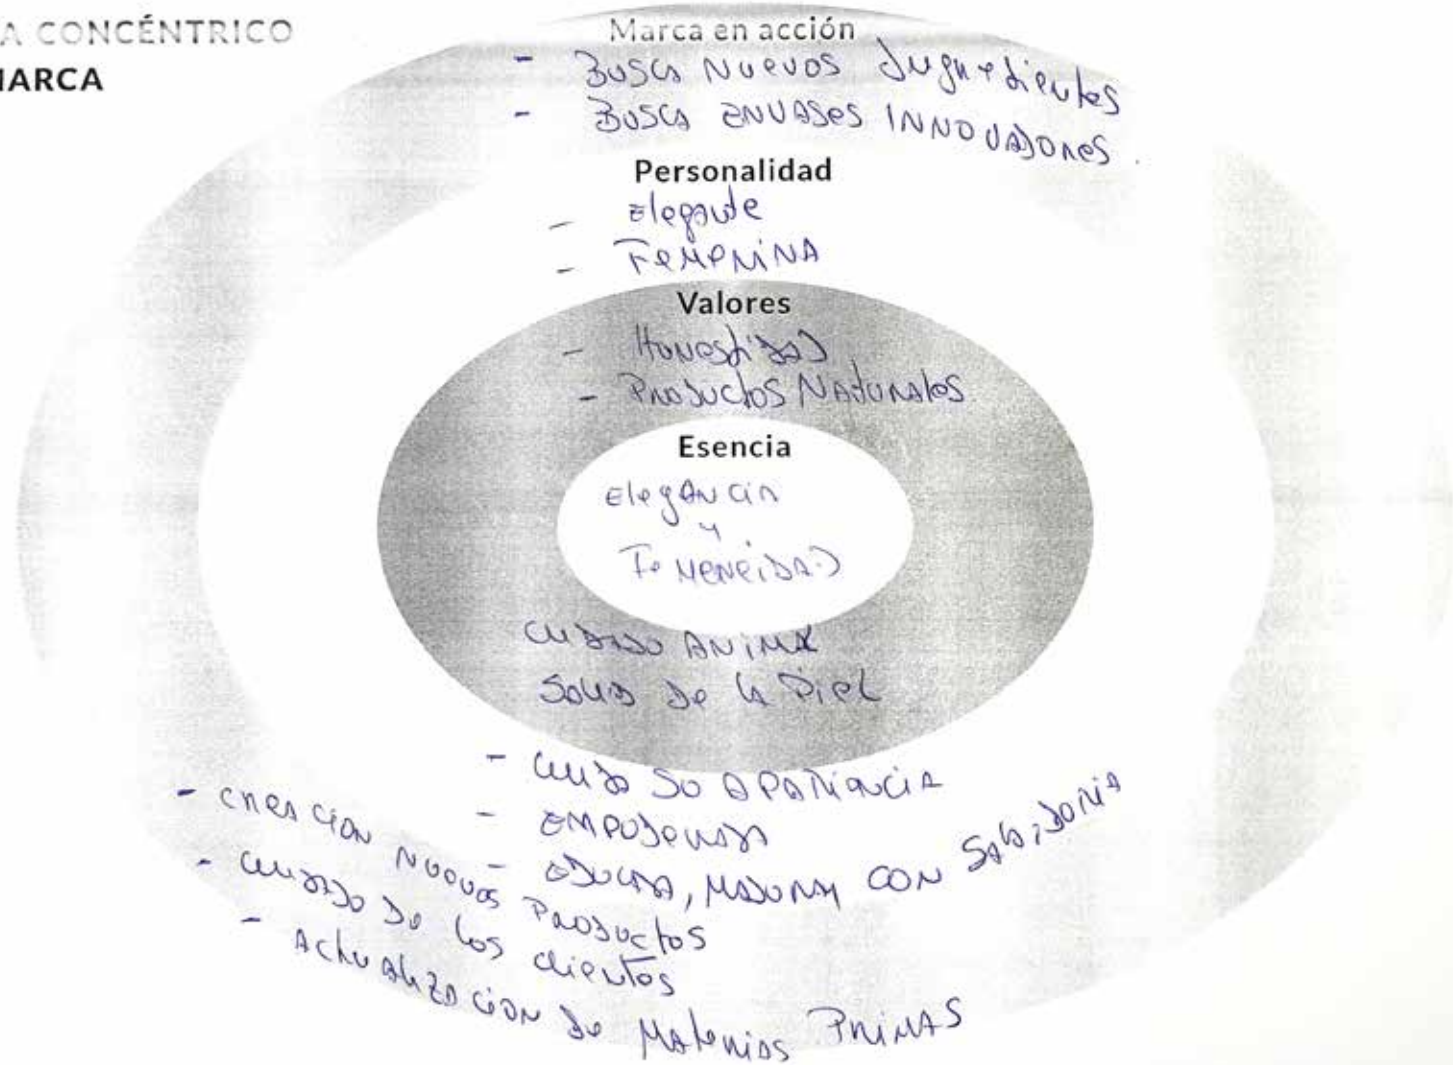 A CONCÉNTRICO
MARCA
Marca en acción
- BUSCA NUEVOS Ingredientes
- BUSCA ENVASES INNOVADORES.
Personalidad
- Elegante
- FEMENINA
Valores
- Honestidad
- PRODUCTOS NATURALES
Esencia
Elegancia
y
Femeneidad
CUIDADO ANIMAL
Salud de la Piel
- cuida SU APARIENCIA
- EMPODERADA
- EDUCADA, MADURA Y CON SABIDORIA
- CREACION NUEVOS PRODUCTOS
- cuidado de los clientes
- Actualización de Materias PRIMAS